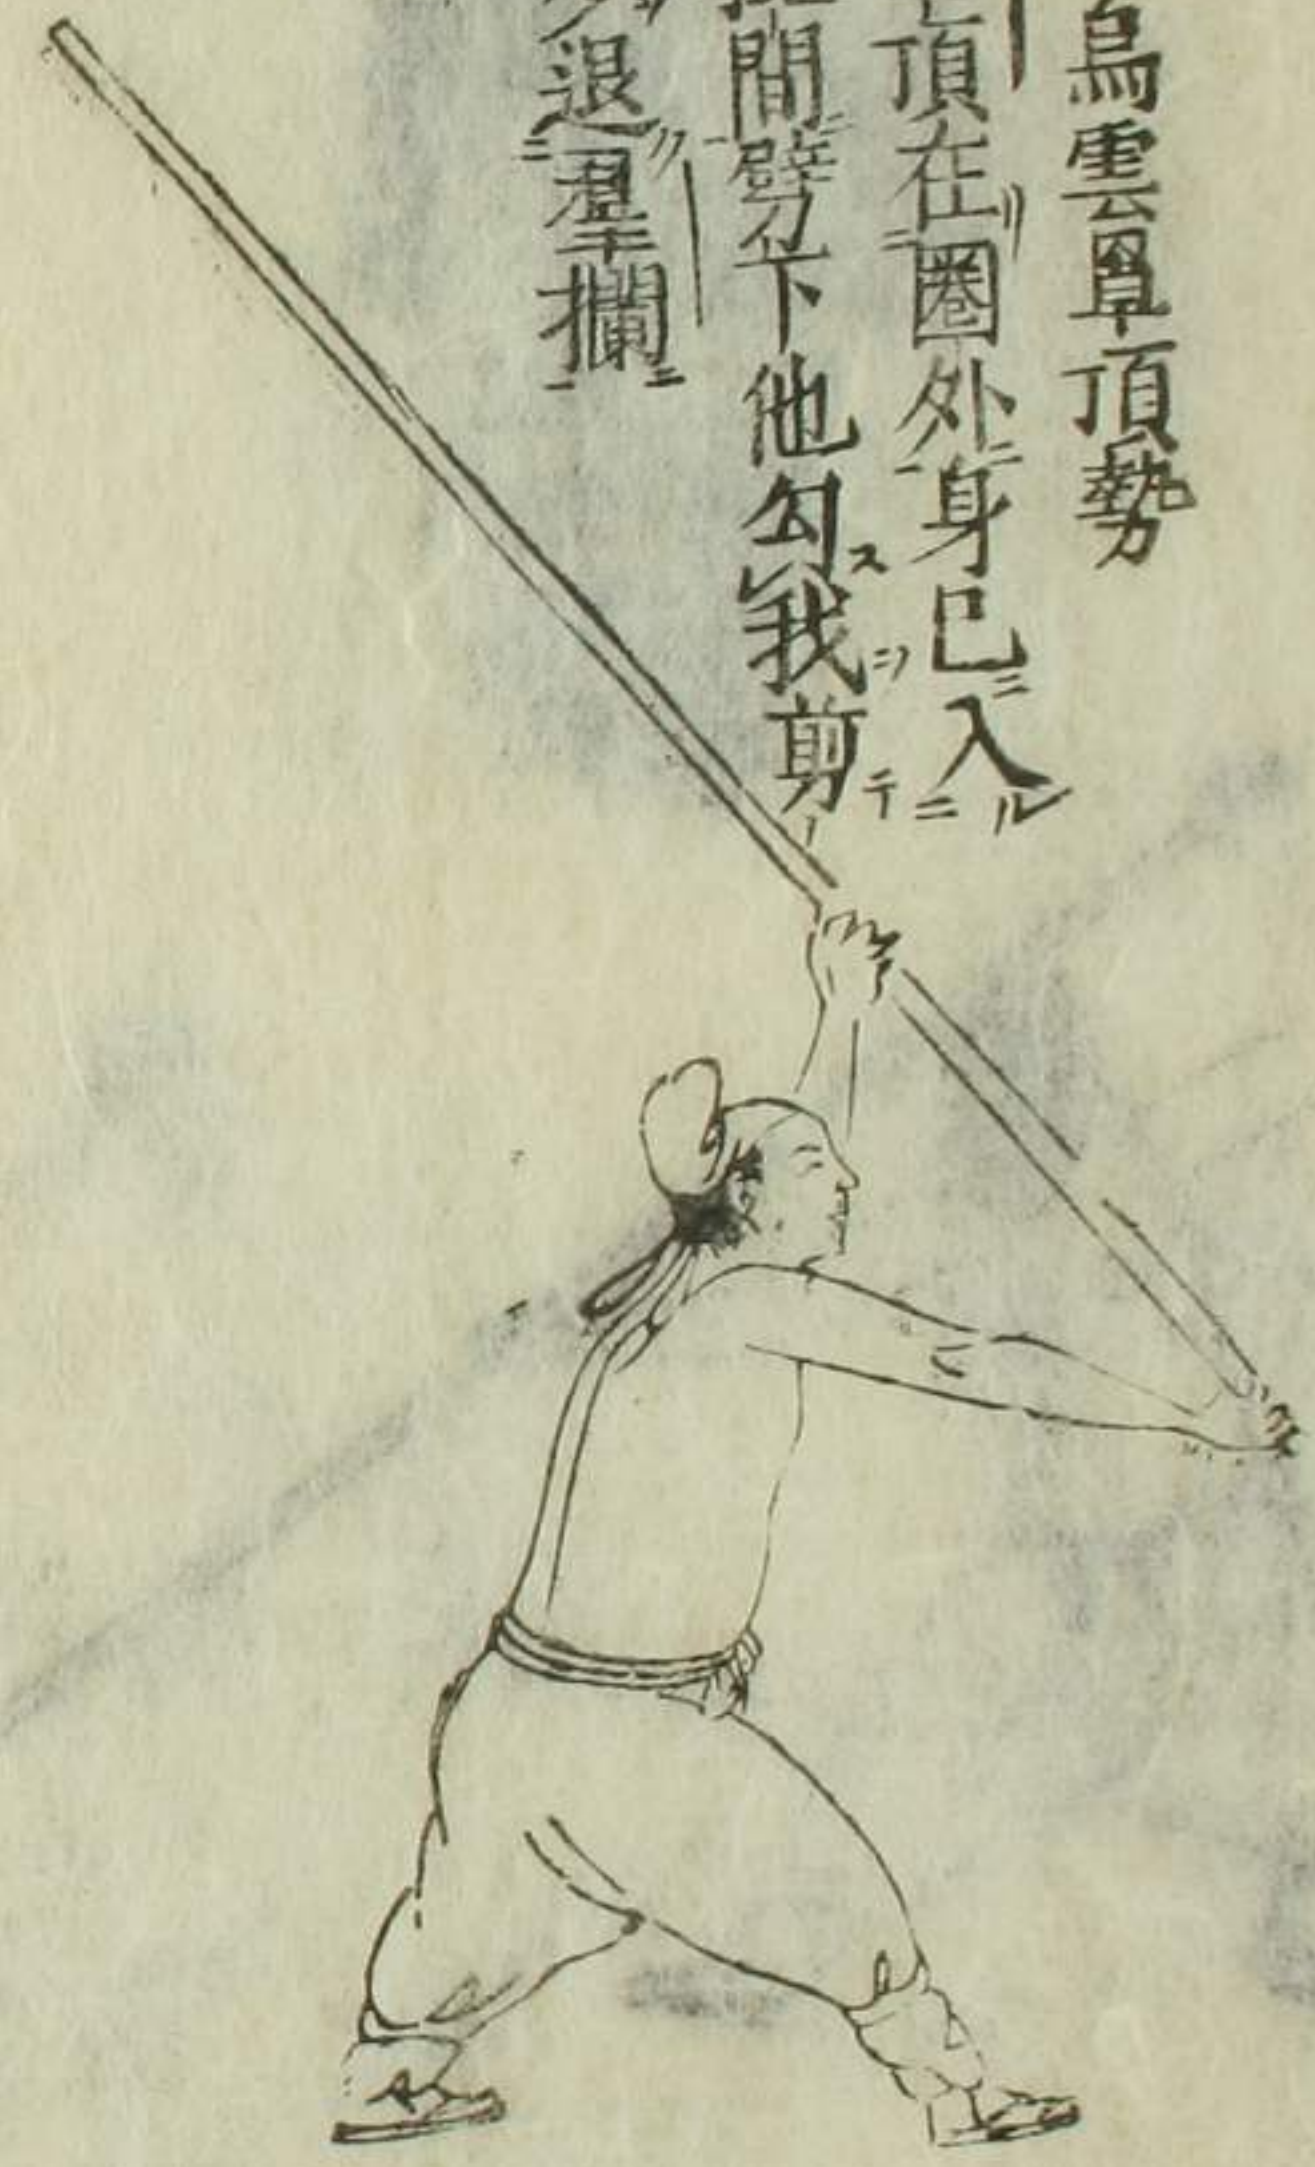 烏雲罩頂勢
頂在圈外身已入
間劈下他勾我剪
退羣攔